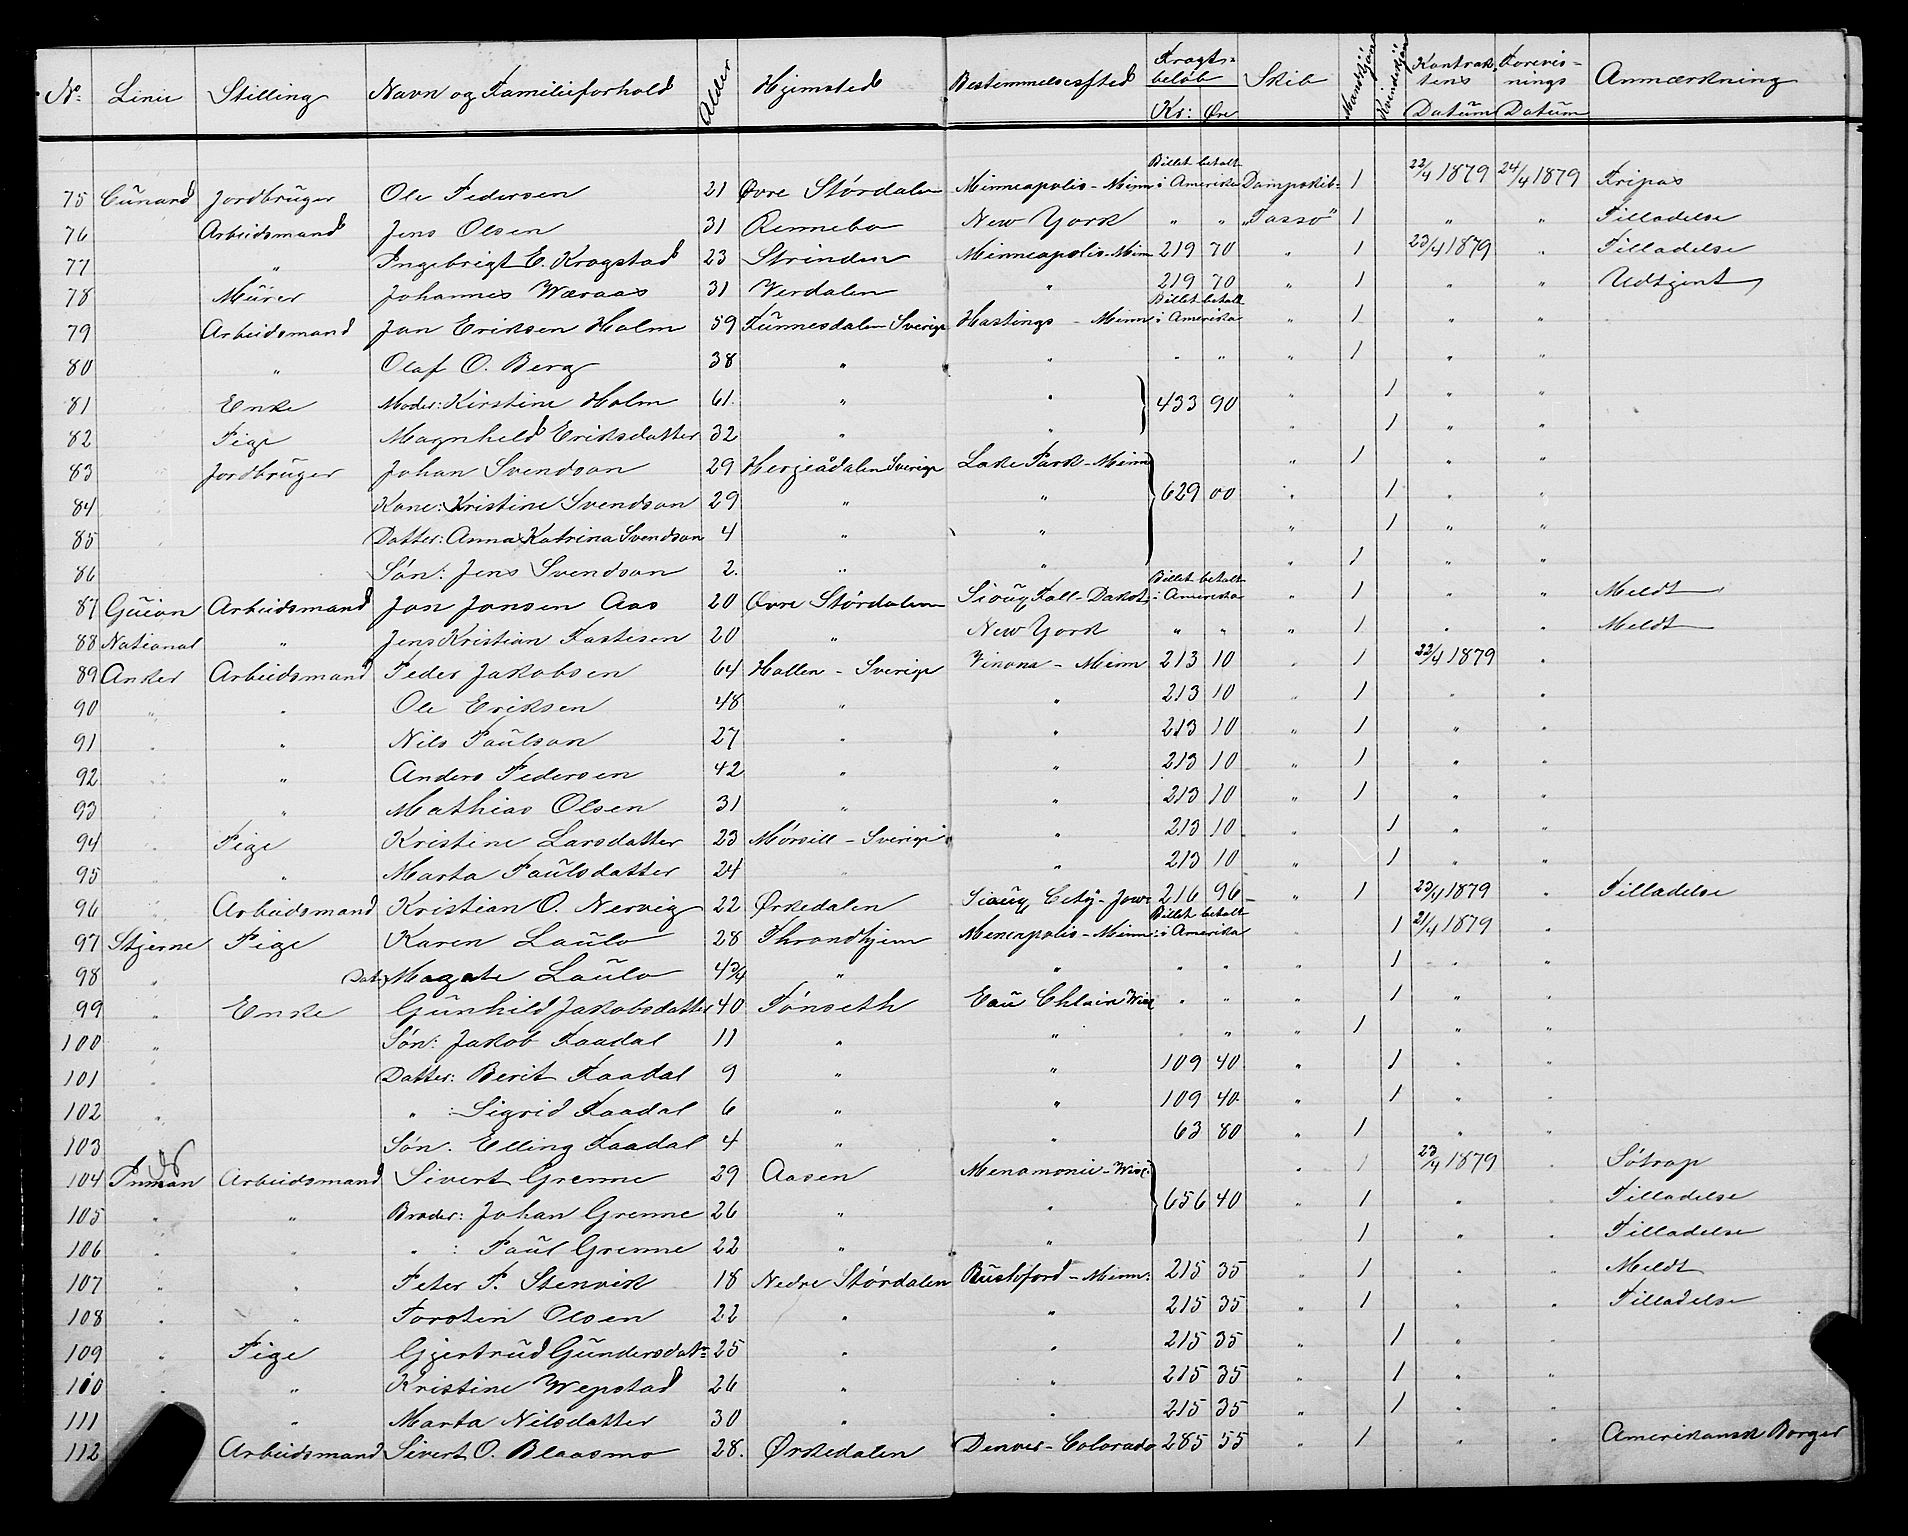 No. Linie Stilling Navn og Familieforhold Alder Hjemsted Bestemmelsessted Fragtbeløb Kr: Øre Skib Mandkjön Kvindekjön Kontraktens Datum Forevisnings Datum Anmærkning
75 Cunard Jordbruger Ole Pedersen 21 Övre Stördalen Minneapolis - Minn Billet betalt i Amerika Dampskib- 1 22/4 1879 24/4 1879 Fripas
76 Arbeidsmand Jens Olsen 31 Rennebo New York " " "Tasso" 1 " " Tilladelse
77 " Ingebrigt E. Kragstad 23 Strinden Minneapolis-Minn 219 70 " 1 23/4 1879 " Tilladelse
78 Murer Johannes Wæraas 31 Verdalen " 219 70 " 1 " " Udtjent
79 Arbeidsmand Jon Eriksen Holm 59 Funnesdalen Sverige Hastings - Minn Billet betalt i Amerika " 1 " "
80 " Olaf O. Berg 38 " " " " " 1 " "
81 Enke Moder: Kirstine Holm 61 " " } 433 90 " 1 " "
82 Pige Magnhild Eriksdatter 32 " " " 1 " "
83 Jordbruger Johan Svendson 29 Herjeådalen Sverige Lake Park - Minn " 1 " "
84 Kone: Kristine Svendson 29 " " } 629 00 " 1 " "
85 Datter: Anna Katrina Svendson 4 " " " 1 " "
86 Sön: Jens Svendson 2. " " " 1 " "
87 Guion Arbeidsmand Jon Jonsen Aas 20 Övre Stördalen Sioux Fall - Dakot Billet betalt i Amerika " 1 " " Meldt
88 National " Jens Kristian Fastesen 20 " New York " " " 1 " " Meldt
89 Anker Arbeidsmand Peder Jakobsen 64 Hallen - Sverige Vinona - Minn 213 10 " 1 22/4 1879 "
90 " " Ole Eriksen 48 " " 213 10 " 1 " "
91 " " Nils Paulson 27 " " 213 10 " 1 " "
92 " " Anders Pedersen 42 " " 213 10 " 1 " "
93 " " Mathias Olsen 31 " " 213 10 " 1 " "
94 " Pige Kristine Larsdatter 23 Mörsill - Sverige " 213 10 " 1 " "
95 " " Marta Paulsdatter 24 " " 213 10 " 1 " "
96 " Arbeidsmand Kristian O. Nervig 22 Ørkedalen Sioux City - Jowa 216 96 " 1 23/4 1879 " Tilladelse
97 Stjerne Pige Karen Laulo 28 Throndhjem Meneapolis - Minn: Billet betalt i Amerika " 1 21/4 1879 "
98 " Dat: Magate Laulo 4 3/4 " " " " " 1 " "
99 " Enke Gunhild Jakobsdatter 40 Tönseth Eau Chlair Wisc " " " 1 " "
100 " Sön: Jakob Faadal 11 " " " " " 1 " "
101 " Datter: Berit Faadal 9 " " 109 40 " 1 " "
102 " " : Sigrid Faadal 6 " " 109 40 " 1 " "
103 Sön: Elling Faadal 4 " " 63 80 " 1 " "
104 Inman Arbeidsmand Sivert Grenne 29 Aasen Menomonie - Wisc " 1 23/4 1879 " Störap
105 " " Broder: Johan Grenne 26 " " } 656 40 " 1 " " Tilladelse
106 " " " : Paul Grenne 22 " " 1 " " Tilladelse
107 " " Peter P. Stenvik 18 Nedre Stördalen Rushford - Minn: 215 35 " 1 " " Meldt
108 " " Torsten Olsen 22 " " 215 35 " 1 " " Tilladelse
109 " Pige Gjertrud Gundersdatr 25 " " 215 35 " 1 " "
110 " " Kristine Wepstad 26 " " 215 35 " 1 " "
111 " Marta Nilsdatter 30 " " 215 35 " 1 " "
112 Arbeidsmand Sivert O. Blaasmo 28. Ørkedalen Denver - Colorado 285 55 " 1 " " Amerikansk Borger